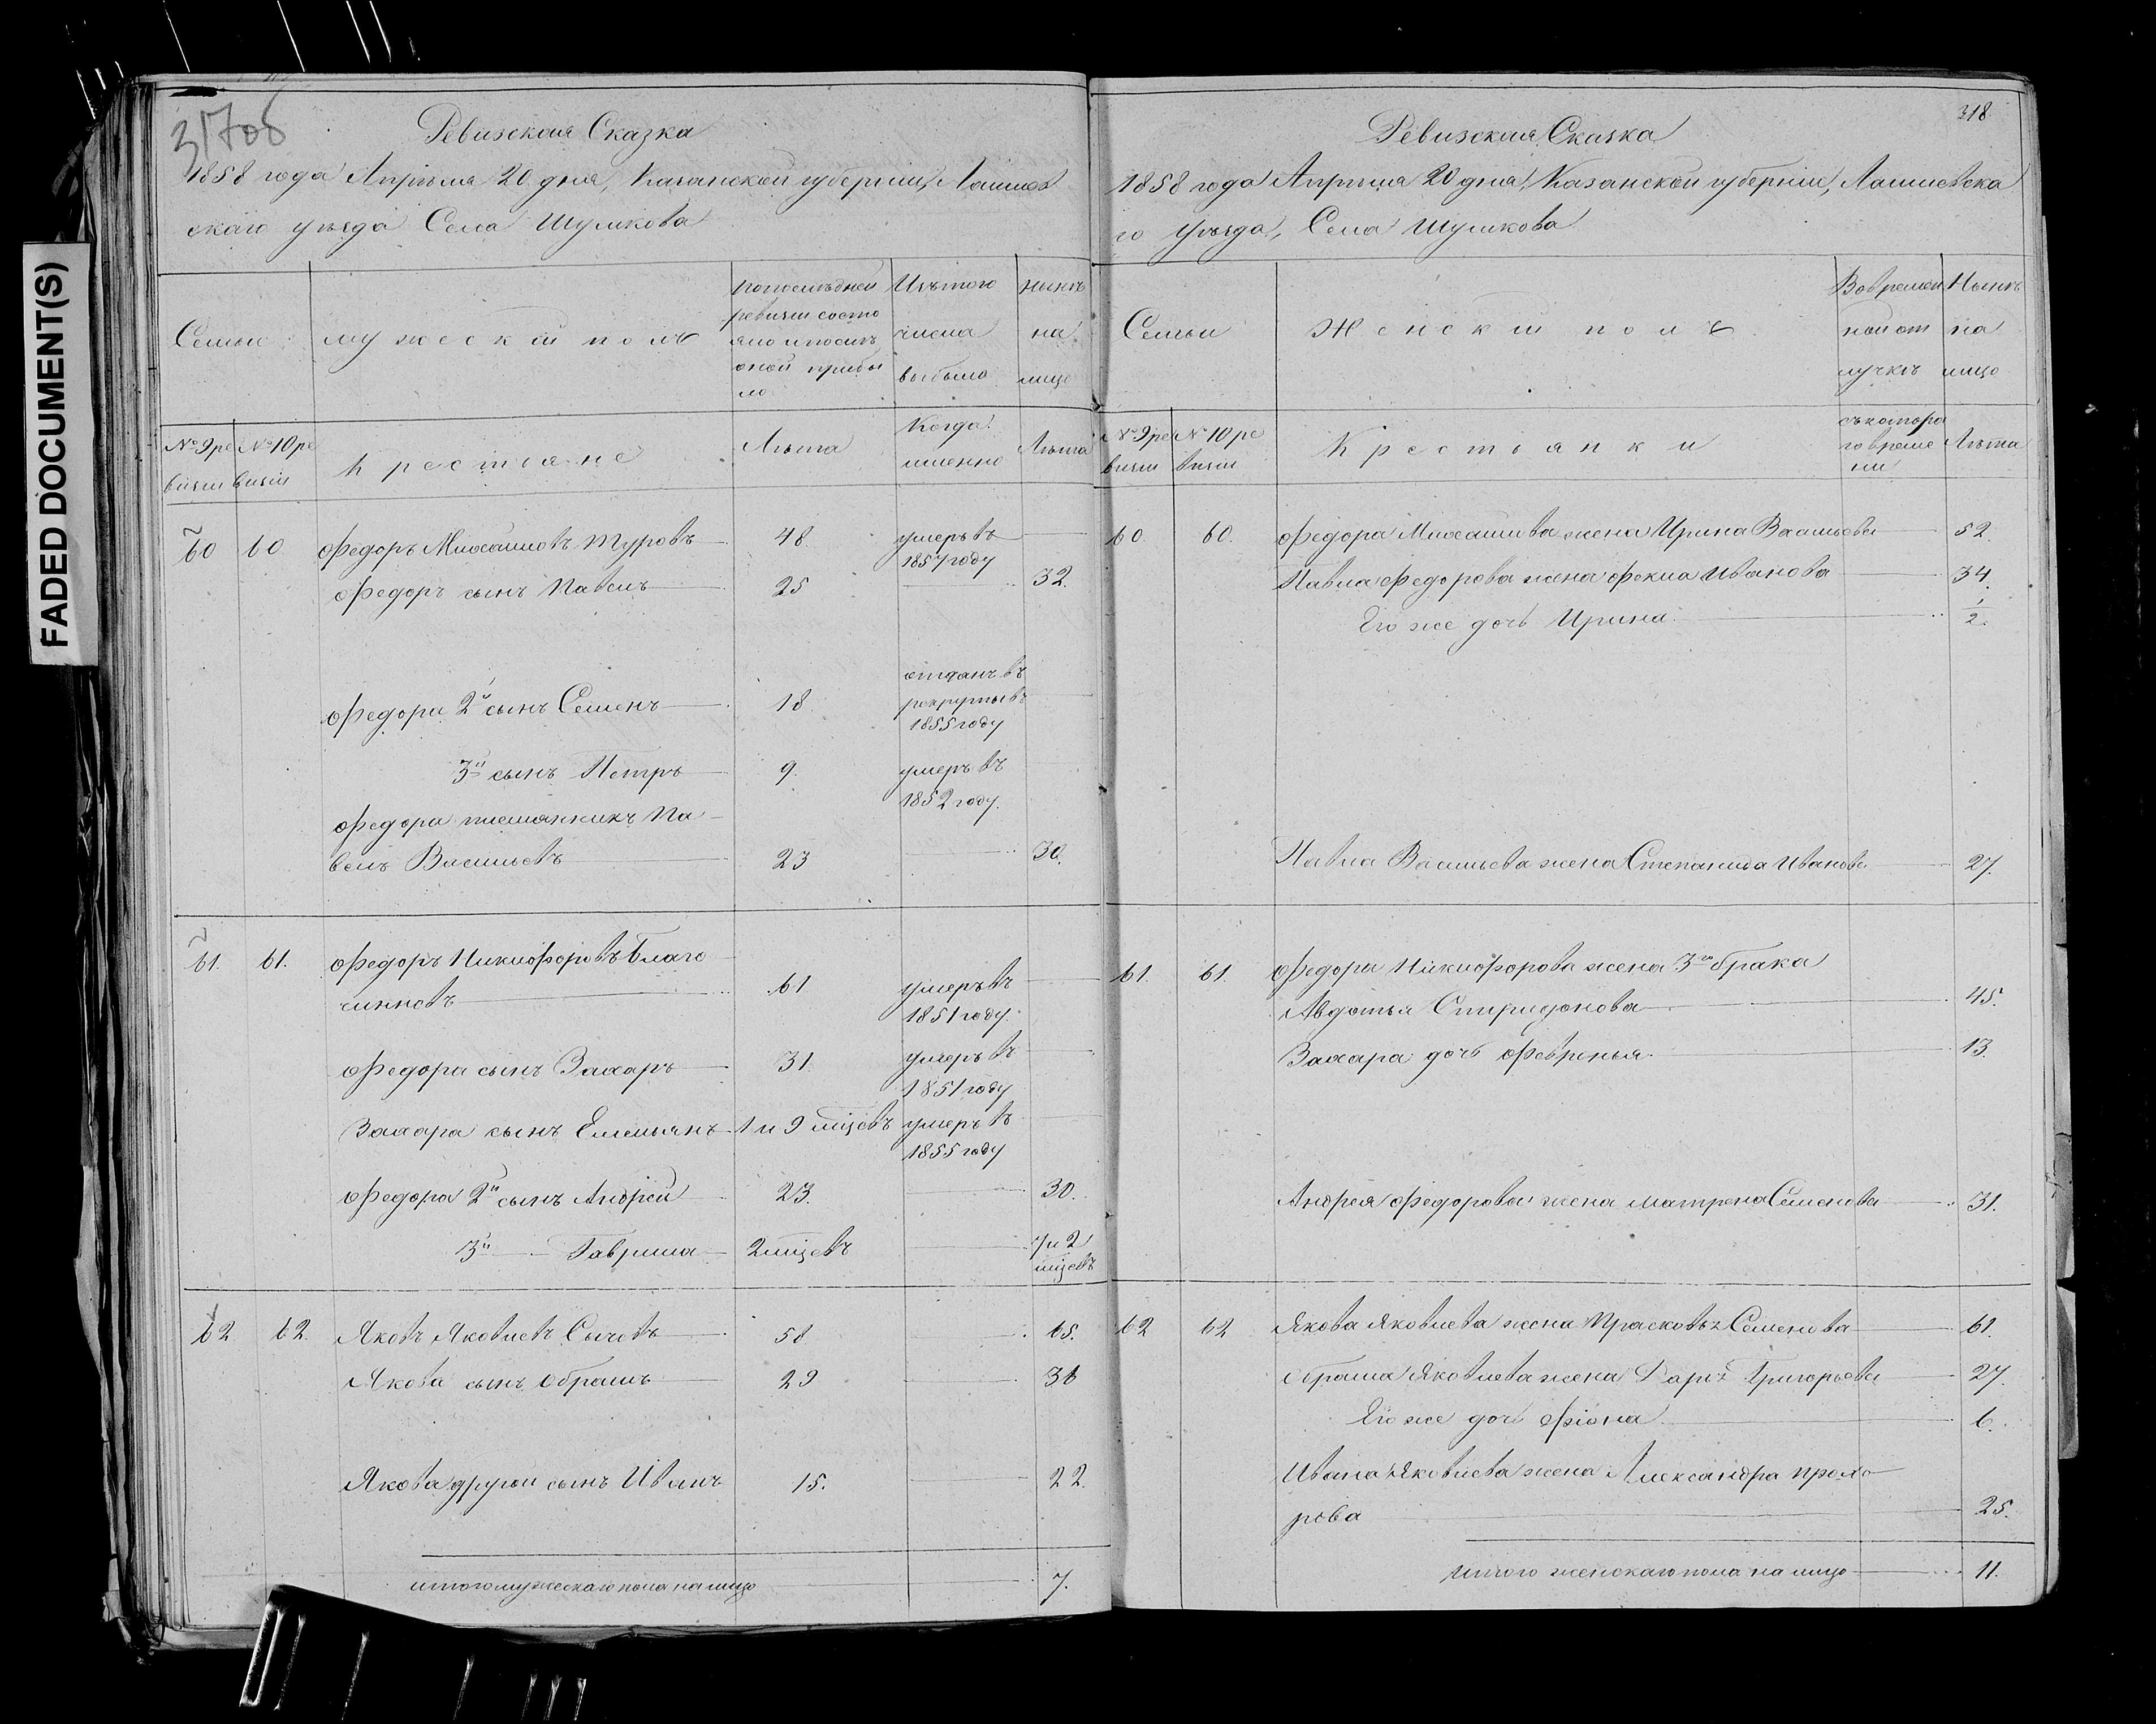 317об
Ревизская Сказка
1858 года Апрѣля 20 дня, Казанской губерніи, Лаишев
скаго уѣзда Села Шумкова
Семьи
мужескій полъ
По последней
ревизіи состо
яло и после
оной прибы
ло
Изъ того
числа
выбыло
Нынѣ
на
лицо
№ 9 ре
визіи
№ 10 ре
визіи
Крестьяне
Лѣта
Когда
именно
Лѣта
60 60 Федоръ Михайловъ Туровъ 48 умеръ въ
1857 году
Федоръ сынъ Павелъ 25 32.
Федора 2й сынъ Семенъ 18 отданъ въ
рекруты въ
1855 году
3й сынъ Петръ 9. умеръ въ
1852 году.
Федора племянникъ Па
велъ Васильевъ 23 30.
61. 61. Федоръ Никифоровъ Благо
чинновъ 61 умеръ въ
1851 году.
Федора сынъ Захаръ 31. умеръ въ
1851 году
Захара сынъ Емельянъ 1 и 9 мцевъ умеръ въ
1855 году
Федора 2й сынъ Андрей 23. 30.
3й — Гаврила 2 мцевъ 7 и 2
мцевъ
62 62. Яковъ Яковлевъ Сычевъ 58. 65.
Якова сынъ Обрамъ 29 38
Якова другой сынъ Иванъ 15. 22.
итого мужескаго пола на лицо 7.
318
Ревизская Сказка
1858 года Апрѣля 20 дня, Казанской губерніи, Лаишевска
го уѣзда, Села Шумкова
Семьи
Женскій полъ
Во времен
ной от
лучкѣ
Нынѣ
на
лицо
№ 9 ре
визіи
№ 10 ре
визіи
Крестьянки
съ котора
го време
ни
Лѣта
60 60. Федора Михайлова жена Ирина Васильева 52.
Павла Федорова жена Фекла Иванова 34.
Его же дочь Ирина. 1/2.
Павла Васильева жена Степанида Иванова 27.
61. 61. Федора Никифорова жена 3го брака
Авдотья Спиридонова 45.
Захара дочь Февронья 13.
Андрея Федорова жена Матрена Семенова 31.
62 62 Якова Яковлева жена Прасковья Семенова 61.
Обрама Яковлева жена Дарья Григорьева 27.
Его же дочь Фіона 6.
Ивана Яковлева жена Александра Прохо
рова 25.
Итого женскаго пола на лицо 11.
FADED DOCUMENT(S)